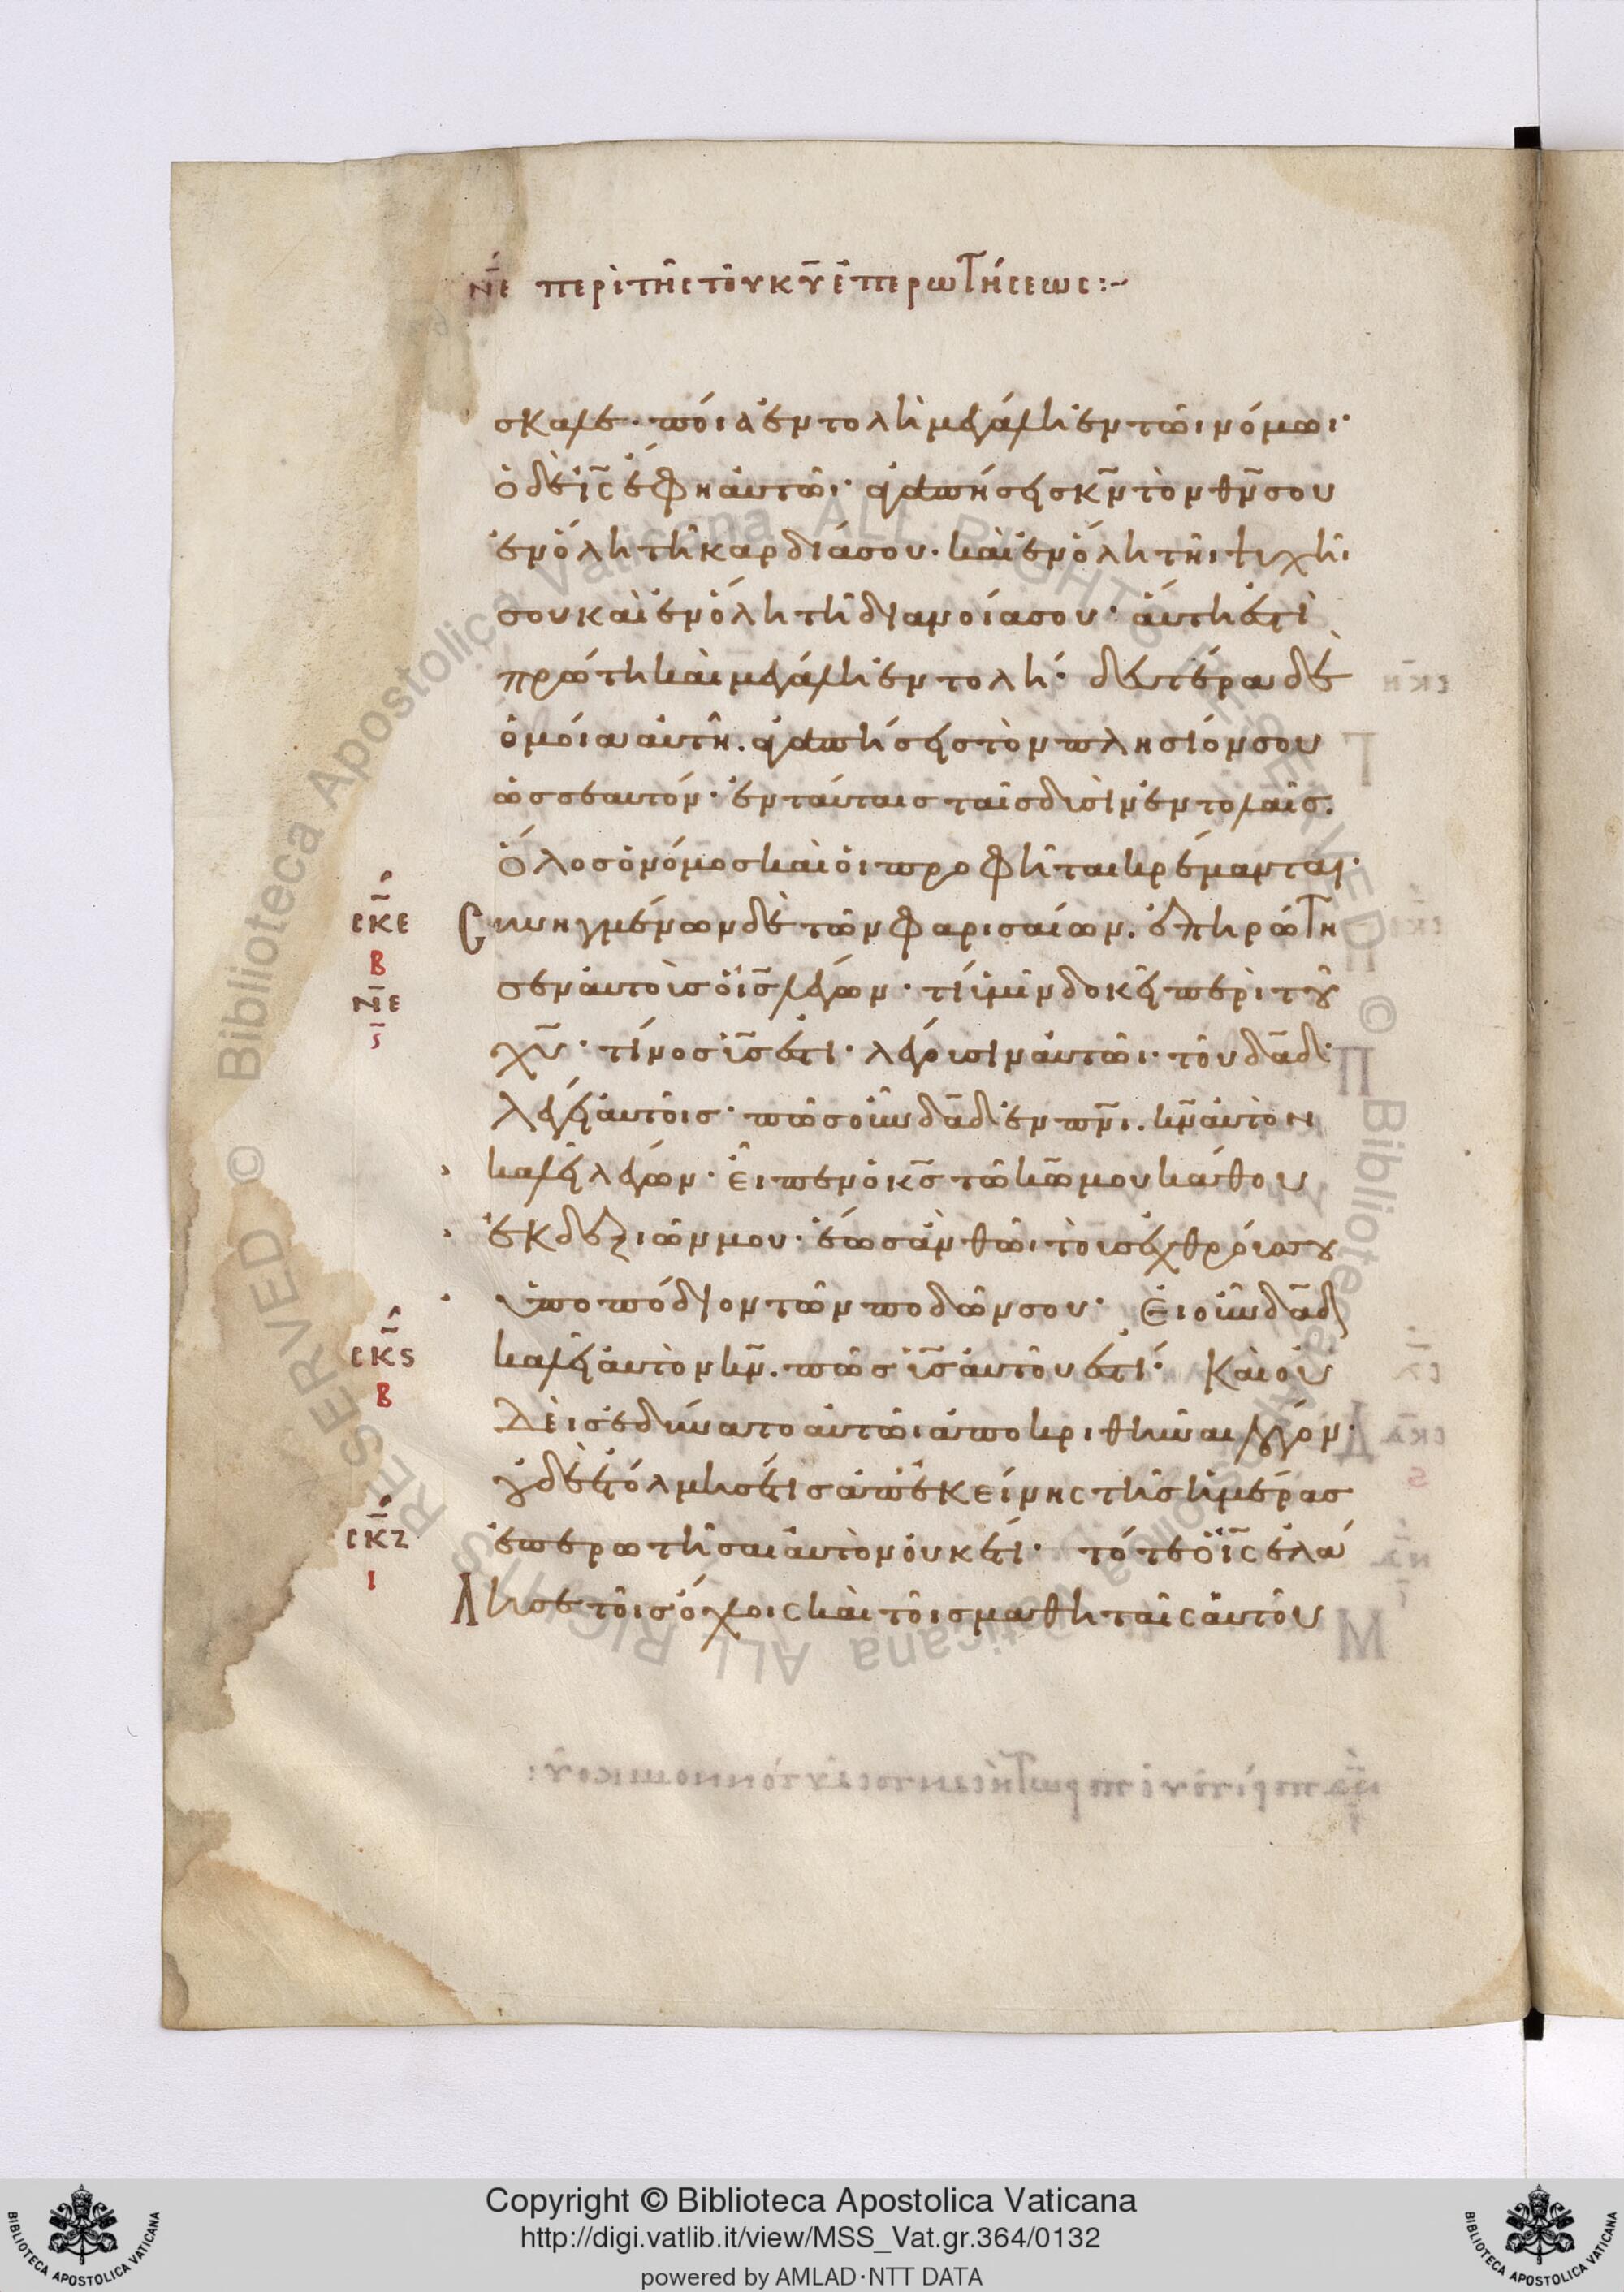 νε περὶ τῆς τοῦ κυ ἐπερωτήσεως:~
σκαλε· ποία ἐντολὴ μεγάλη ἐν τῶι νόμωι·
ὁ δὲ ις ἔφη αὐτῶι· ἀγαπήσεις κν τὸν θν σου
ἐν ὅλη τῆ καρδία σου· καὶ ἐν ὅλη τῆι ψυχῆι
σου καὶ ἐν ὅλη τῆ διανοία σου· αὕτη ἐστὶ
πρώτη καὶ μεγάλη ἐντολή· δευτέρα δὲ
ὁμοία αὐτῆ. ἀγαπήσεις τὸν πλησίον σου
ὡς σεαυτόν· ἐν ταύταις ταῖς δυσὶν ἐντολαῖς.
ὅλος ὁ νόμος καὶ οἱ προφῆται κρέμανται·
σκε Συνηγμένων δὲ τῶν φαρισαίων. ἐπηρώτη
β
νε
ς
σεν αὐτοὺς ὁ ις λέγων· τί ὑμῖν δοκεῖ περὶ τοῦ
χυ· τίνος υς ἐστι· λέγουσιν αὐτῶι· τοῦ δαδ·
λέγει αὐτοῖς· πῶς οὖν δαδ ἐν πνι. κν αὐτὸν
καλεῖ λέγων· εἶπεν ὁ κς τῶ κω μου κάθου
ἐκ δεξιῶν μου· ἕως ἂν θῶ τοὺς ἐχθρούς σου
ὑποπόδιον τῶν ποδῶν σου· Εἰ οὖν δαδ
σκς καλεῖ αὐτὸν κν. πῶς υς αὐτοῦ ἐστι· Καὶ οὐ
β
δεὶς ἐδύνατο αὐτῶι ἀποκριθῆναι λόγον·
οὐδὲ ἐτόλμησέ τις ἀπ' ἐκείνης τῆς ἡμέρας
σκζ ἐπερωτῆσαι αὐτὸν οὐκέτι· τότε ὁ ις ἐλά
ι
Λησε τοῖς ὄχλοις καὶ τοῖς μαθηταῖς αὐτοῦ
Copyright © Biblioteca Apostolica Vaticana
http://digi.vatlib.it/view/MSS_Vat.gr.364/0132
powered by AMLAD·NTT DATA